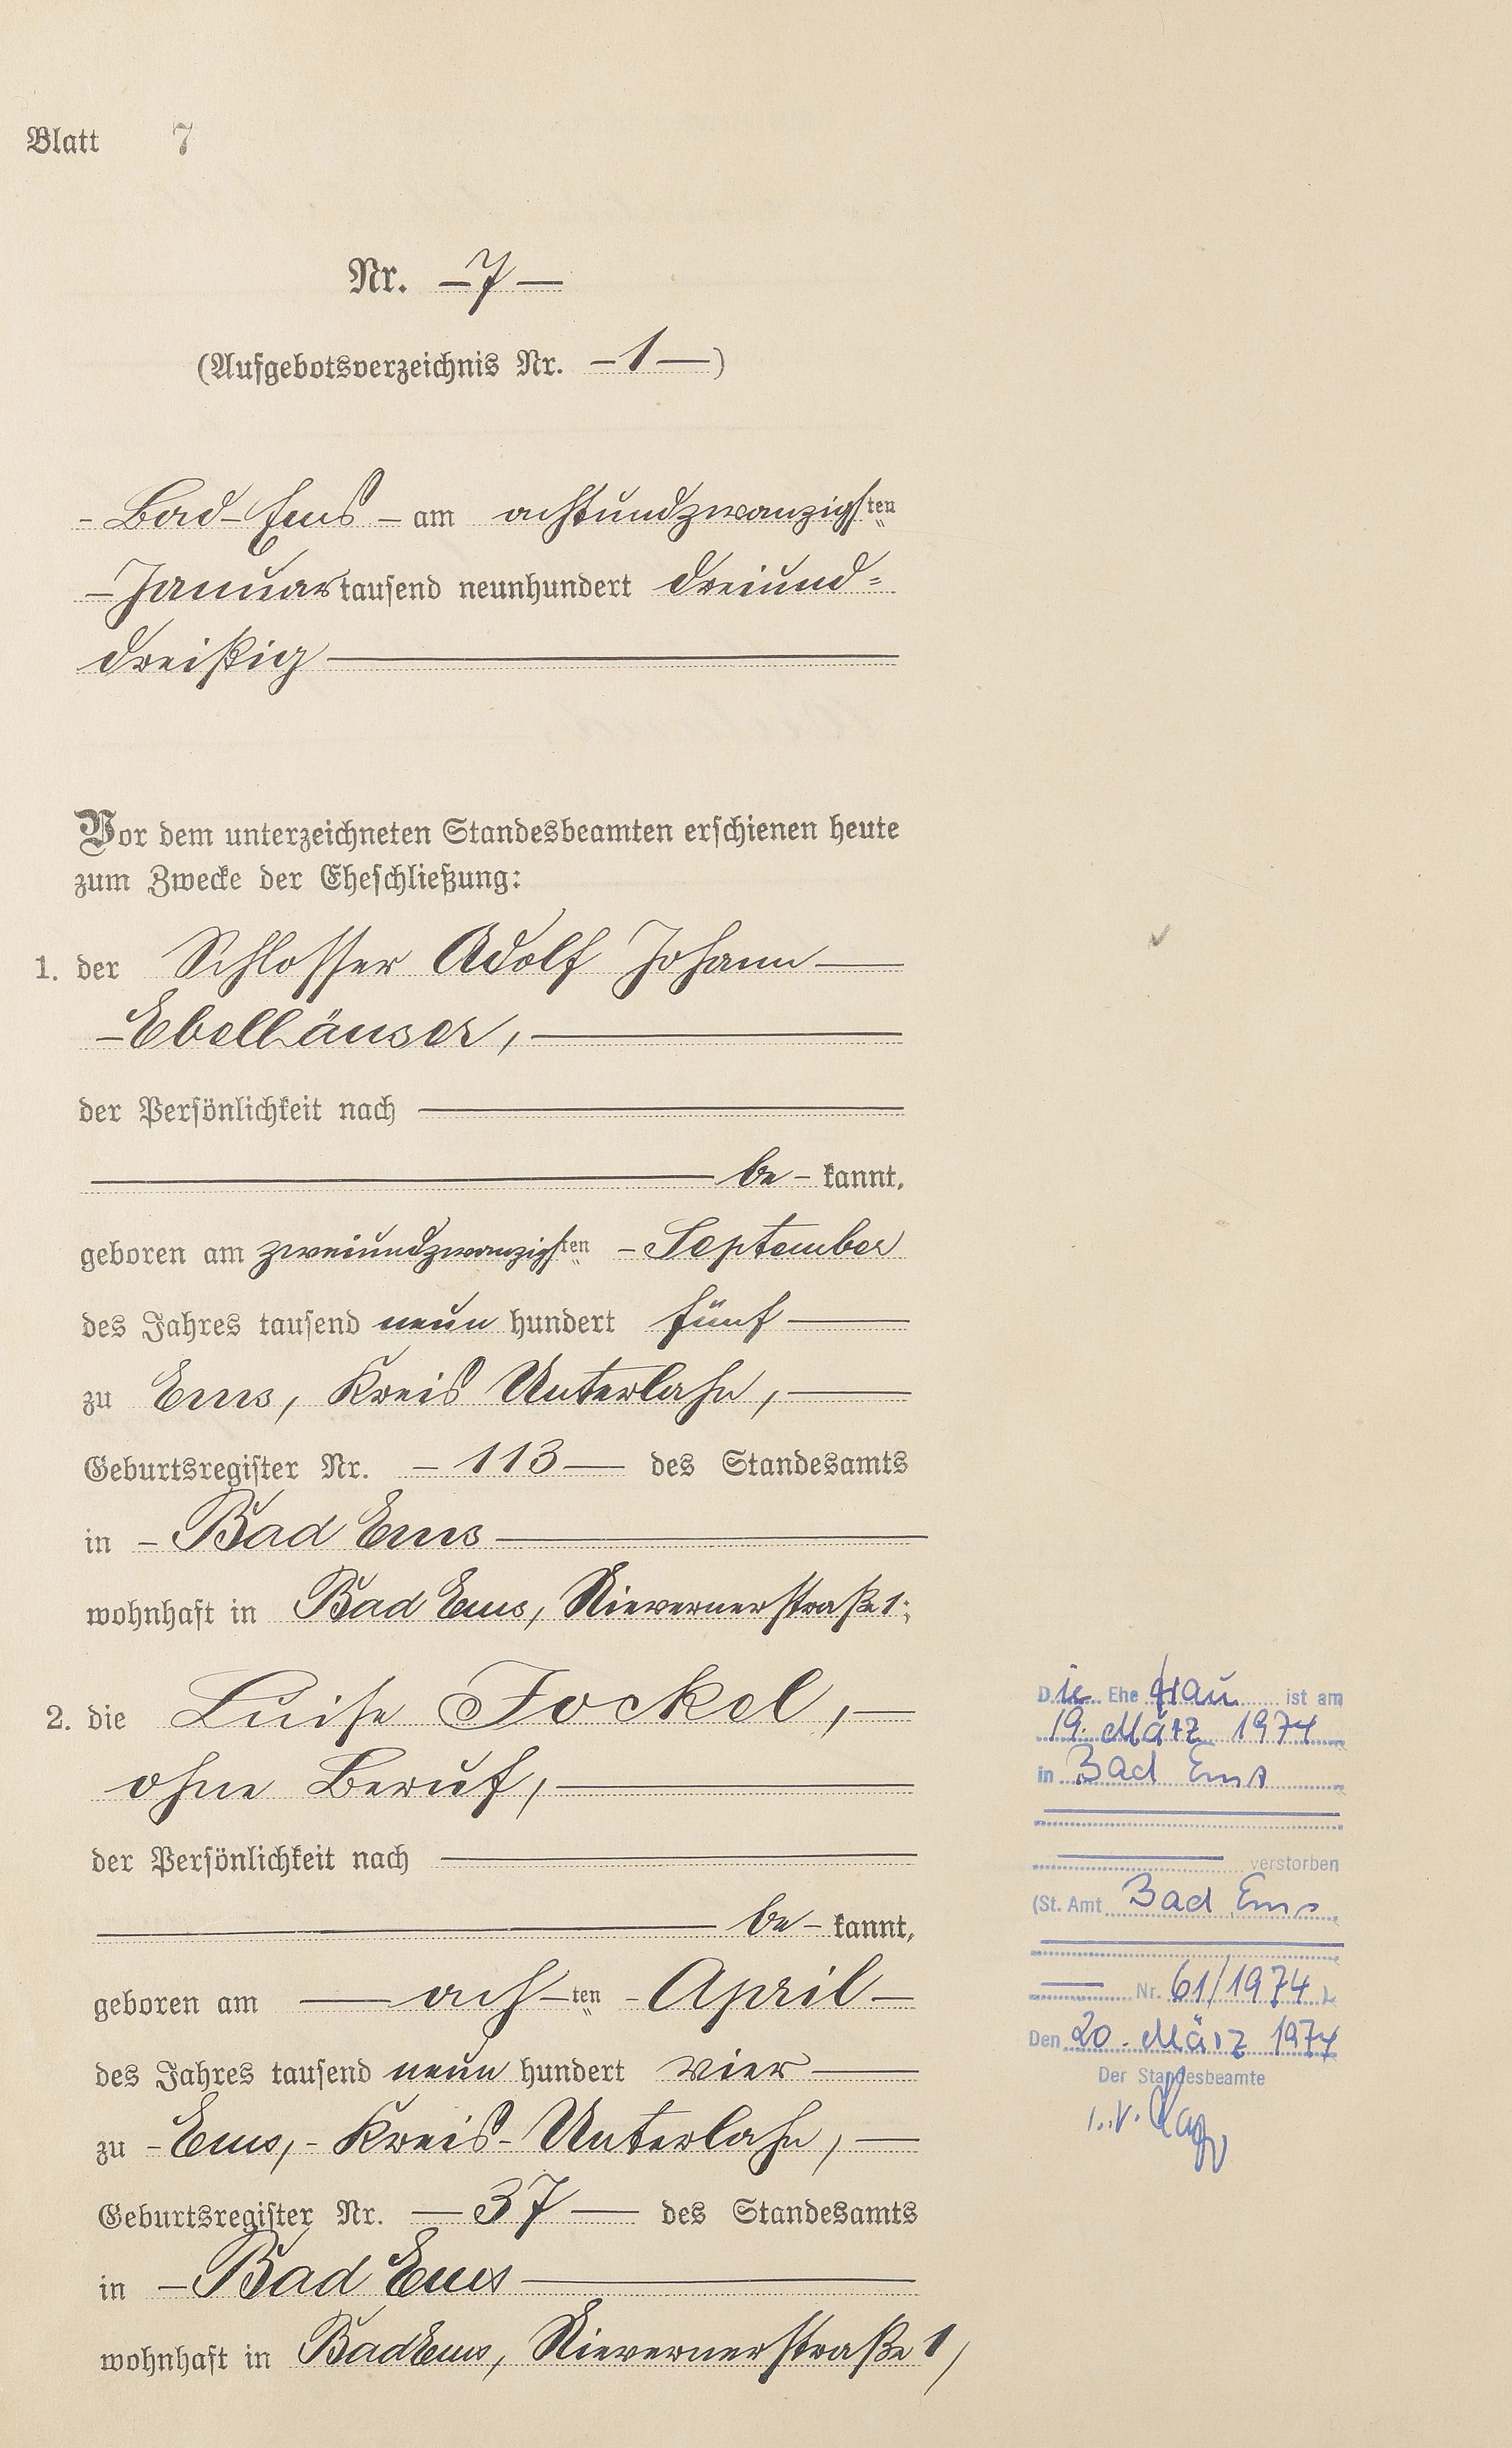 Blatt 7
Nr. –7–
(Aufgebotsverzeichnis Nr. –1–)
- Bad-Ems – am achtundzwanzigsten
– Januar tausend neunhundert dreiund=
dreißig
Vor dem unterzeichneten Standesbeamten erschienen heute
zum Zwecke der Eheschließung:
1. der Schlosser Adolf Johann –
– Ebelhäuser, –
der Persönlichkeit nach –
– be – kannt,
geboren am zweiundzwanzigsten – September
des Jahres tausend neun hundert fünf –
zu Ems, Kreis Unterlahn, –
Geburtsregister Nr. – 113 – des Standesamts
in – Bad Ems –
wohnhaft in Bad Ems, Nievernerstraße 1;
2. die Luise Fockel, –
ohne Beruf, –
der Persönlichkeit nach –
– be – kannt,
geboren am – achten – April –
des Jahres tausend neun hundert vier –
zu – Ems, - Kreis - Unterlahn, –
Geburtsregister Nr. – 37 – des Standesamts
in – Bad Ems –
wohnhaft in Bad Ems, Nievernerstraße 1,
Die Ehefrau ist am
19. März 1974
in Bad Ems
verstorben
(St. Amt Bad Ems
Nr. 61/1974)
Den 20. März 1974
Der Standesbeamte
i.V.